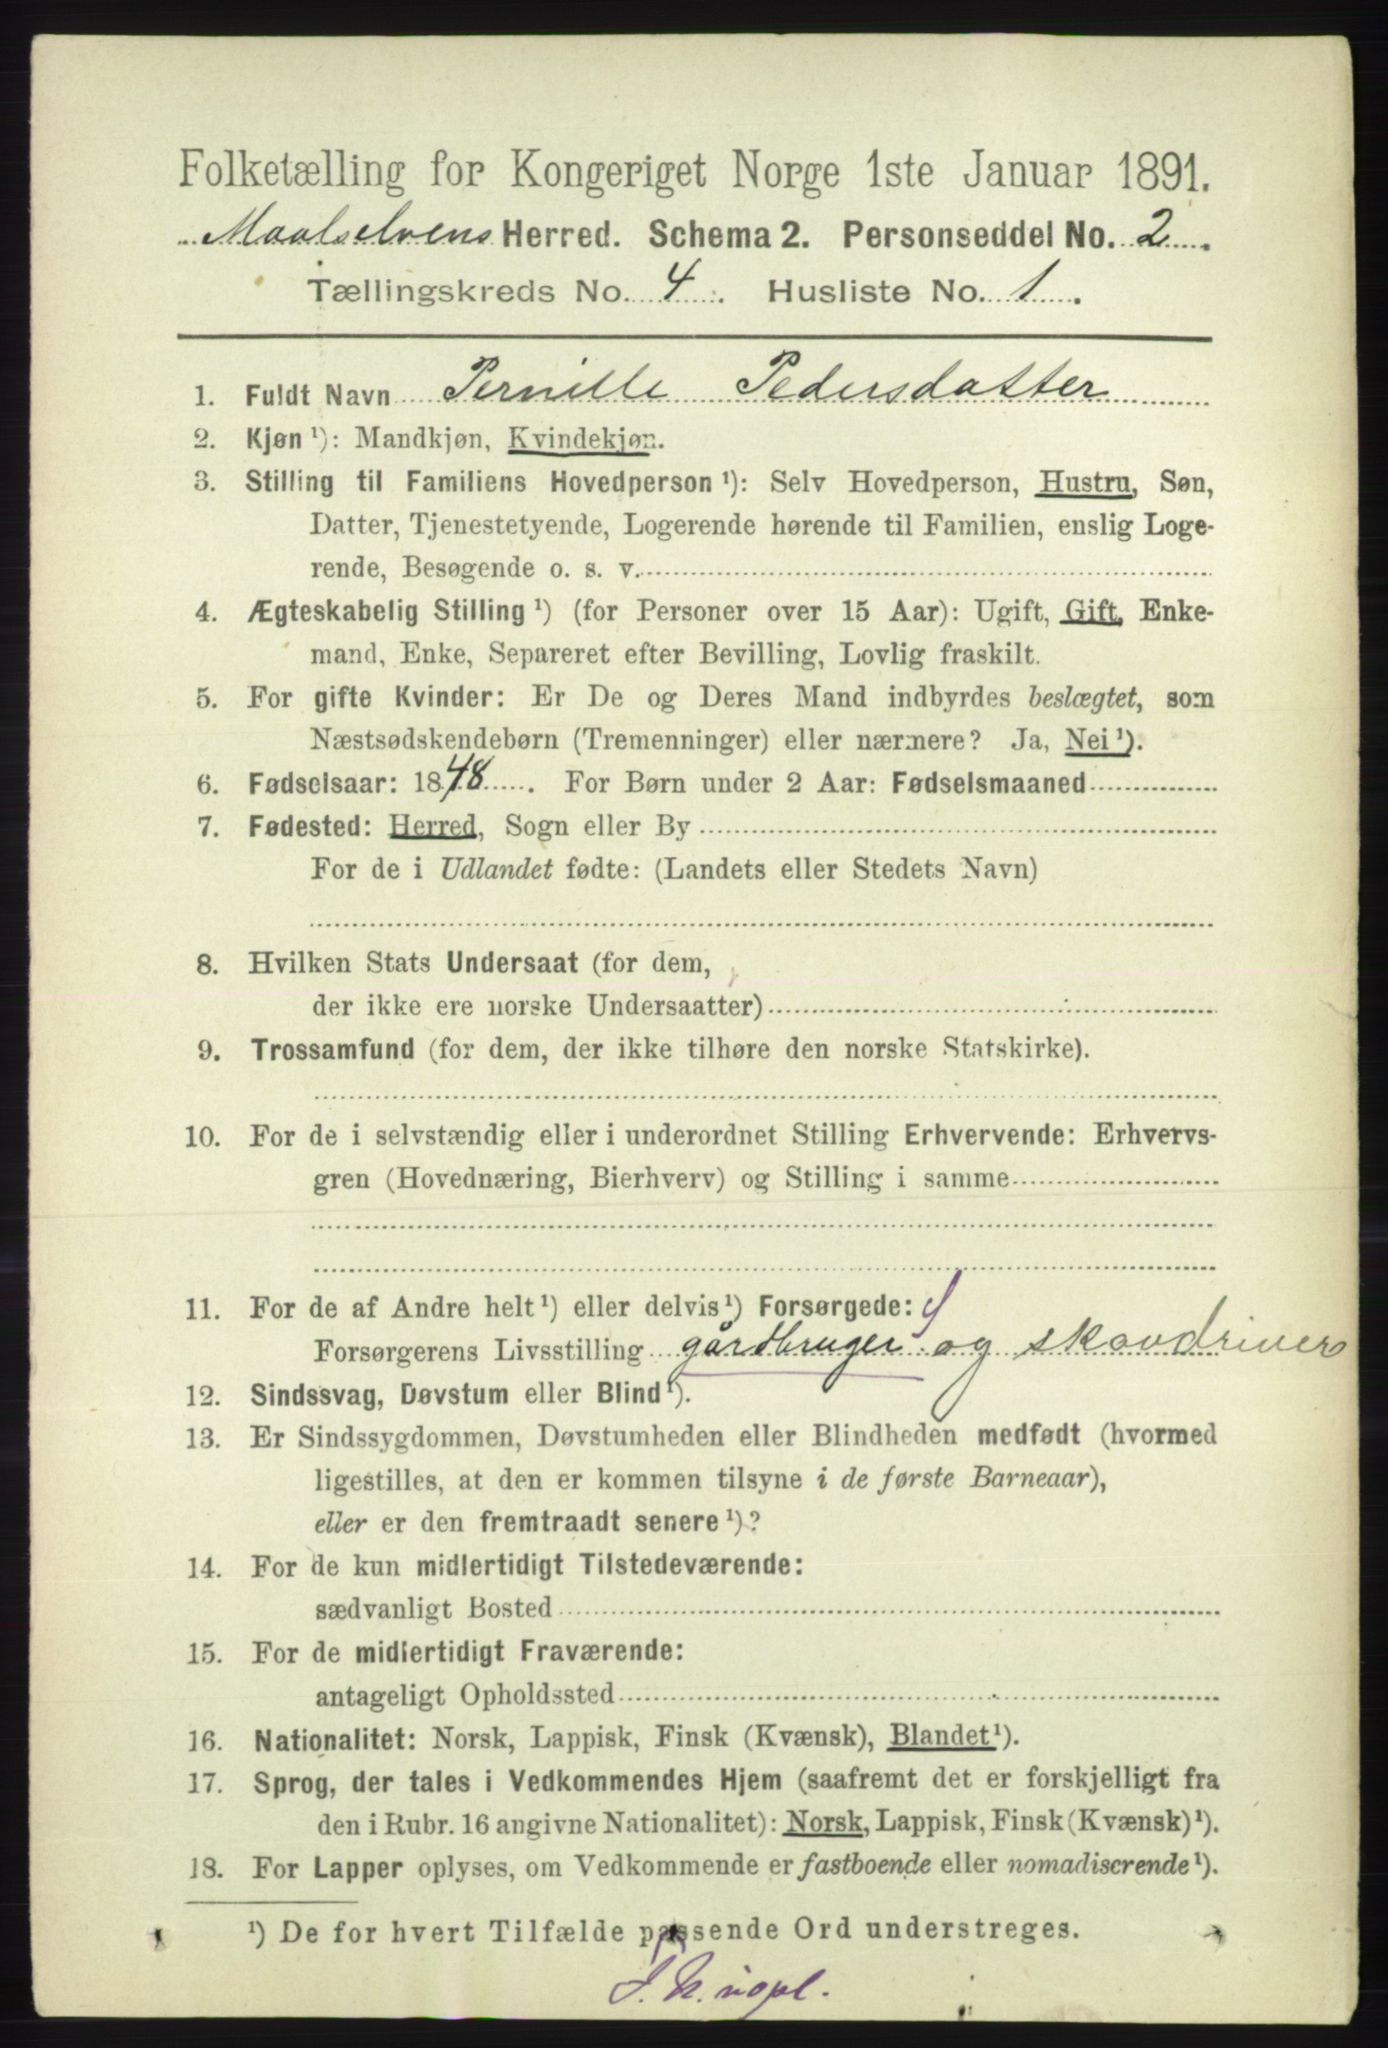 Folketælling for Kongeriget Norge 1ste Januar 1891.
Maalselvens Herred. Schema 2. Personseddel No. 2.
Tællingskreds No. 4. Husliste No. 1.
1. Fuldt Navn Pernille Pedersdatter
2. Kjøn ¹): Mandkjøn, Kvindekjøn.
3. Stilling til Familiens Hovedperson ¹): Selv Hovedperson, Hustru, Søn,
Datter, Tjenestetyende, Logerende hørende til Familien, enslig Loge-
rende, Besøgende o. s. v.
4. Ægteskabelig Stilling ¹) (for Personer over 15 Aar): Ugift, Gift, Enke-
mand, Enke, Separeret efter Bevilling, Lovlig fraskilt.
5. For gifte Kvinder: Er De og Deres Mand indbyrdes beslægtet, som
Næstsødskendebørn (Tremenninger) eller nærmere? Ja, Nei ¹).
6. Fødselsaar: 1848. For Børn under 2 Aar: Fødselsmaaned
7. Fødested: Herred, Sogn eller By
For de i Udlandet fødte: (Landets eller Stedets Navn)
8. Hvilken Stats Undersaat (for dem,
der ikke ere norske Undersaatter)
9. Trossamfund (for dem, der ikke tilhøre den norske Statskirke).
10. For de i selvstændig eller i underordnet Stilling Erhvervende: Erhvervs-
gren (Hovednæring, Bierhverv) og Stilling i samme
11. For de af Andre helt ¹) eller delvis ¹) Forsørgede:
Forsørgerens Livsstilling gårdbruger og skovdriver
12. Sindssvag, Døvstum eller Blind ¹).
13. Er Sindssygdommen, Døvstumheden eller Blindheden medfødt (hvormed
ligestilles, at den er kommen tilsyne i de første Barneaar),
eller er den fremtraadt senere ¹)?
14. For de kun midlertidigt Tilstedeværende:
sædvanligt Bosted
15. For de midlertidigt Fraværende:
antageligt Opholdssted
16. Nationalitet: Norsk, Lappisk, Finsk (Kvænsk), Blandet ¹).
17. Sprog, der tales i Vedkommendes Hjem (saafremt det er forskjelligt fra
den i Rubr. 16 angivne Nationalitet): Norsk, Lappisk, Finsk (Kvænsk) ¹).
18. For Lapper oplyses, om Vedkommende er fastboende eller nomadiserende ¹).
¹) De for hvert Tilfælde passende Ord understreges.